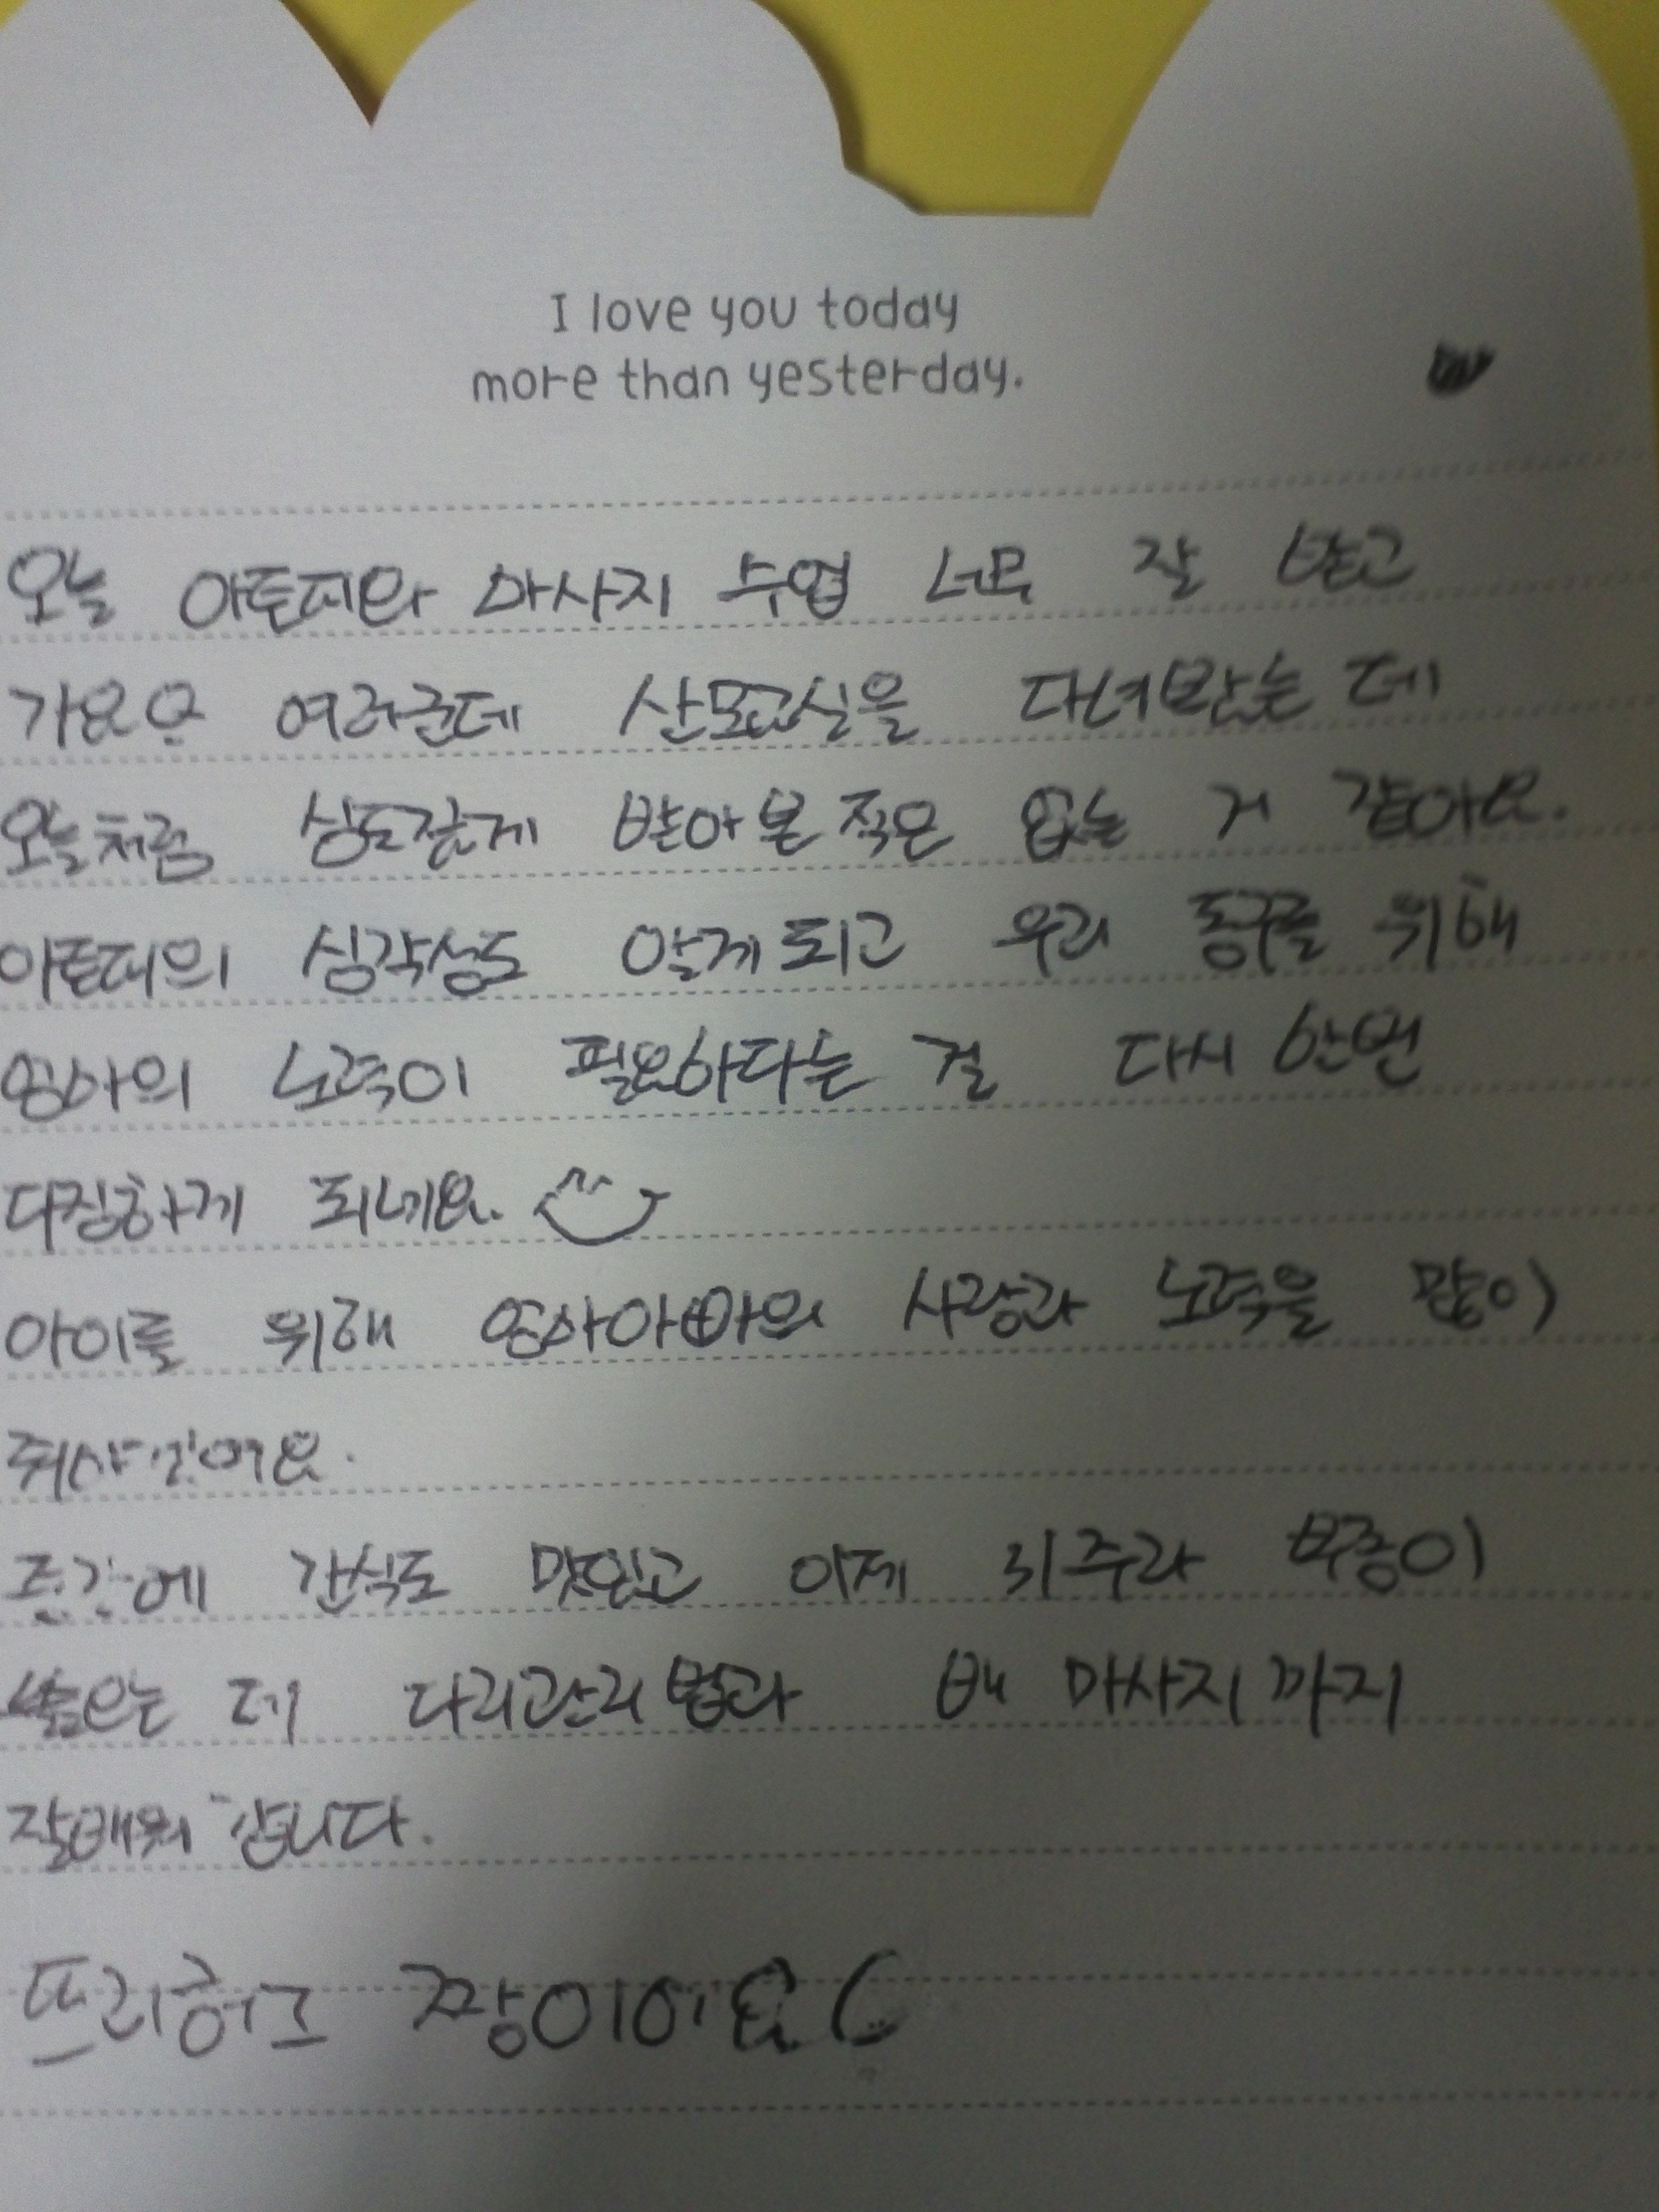 I love you today
more than yesterday.
오늘 아토피와 마사지 수업 너무 잘 받고
가요 여러군데 산모교실을 다녀봤는데
오늘처럼 심도깊게 받아본 적은 없는 거 같아요.
아토피의 심각성도 알게되고 우리 동구를 위해
엄마의 노력이 필요하다는 걸 다시 한번
다짐하게 되네요.
아이를 위해 엄마아빠의 사랑과 노력을 많이
줘야겠어요.
중간에 간식도 맛있고 이제 31주라 부종이
심했는데 다리관리법과 배 마사지까지
잘배워 갑니다.
뜨리허그 짱이에요